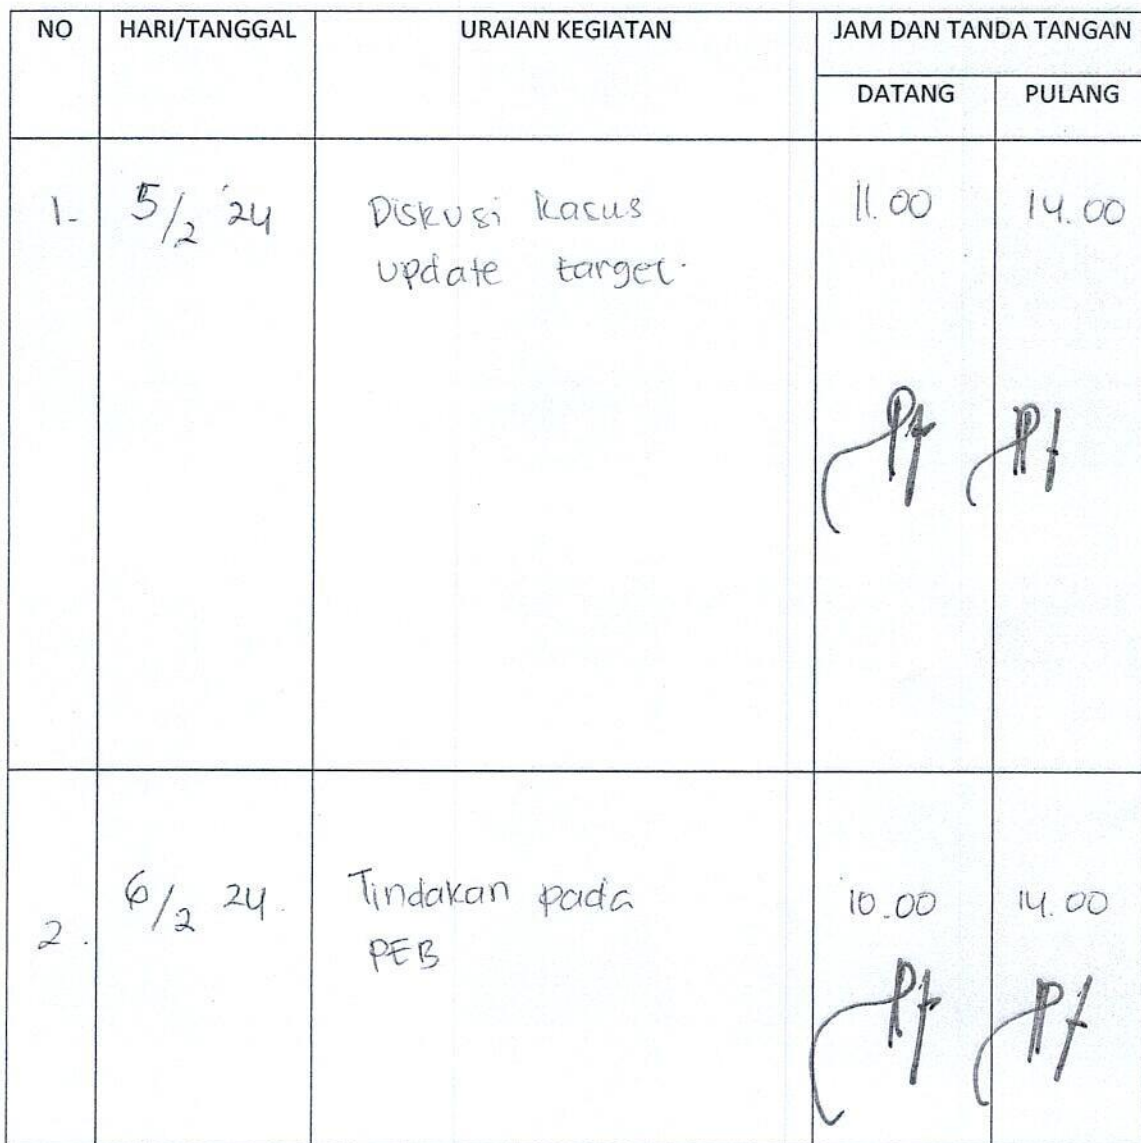 NO HARI/TANGGAL URAIAN KEGIATAN JAM DAN TANDA TANGAN
DATANG PULANG
1. 5/2 '24 Diskusi kasus 11.00 14.00
update target.
2. 6/2 24. Tindakan pada 10.00 14.00
PEB